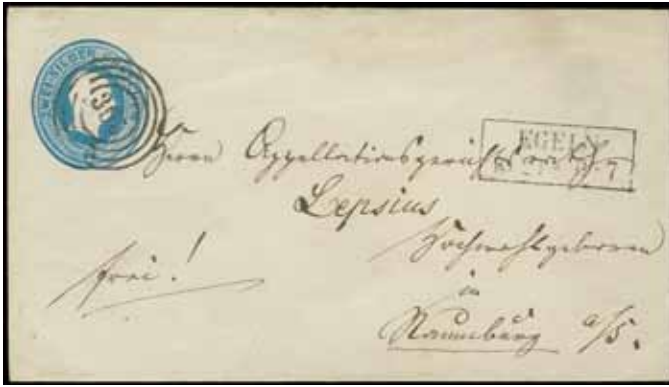 ZWEI SILBER
EGELN
Herrn Appellationsgerichtsrath
Lepsius
Hochwohlgeboren
frei!
in
Naumburg a/S.